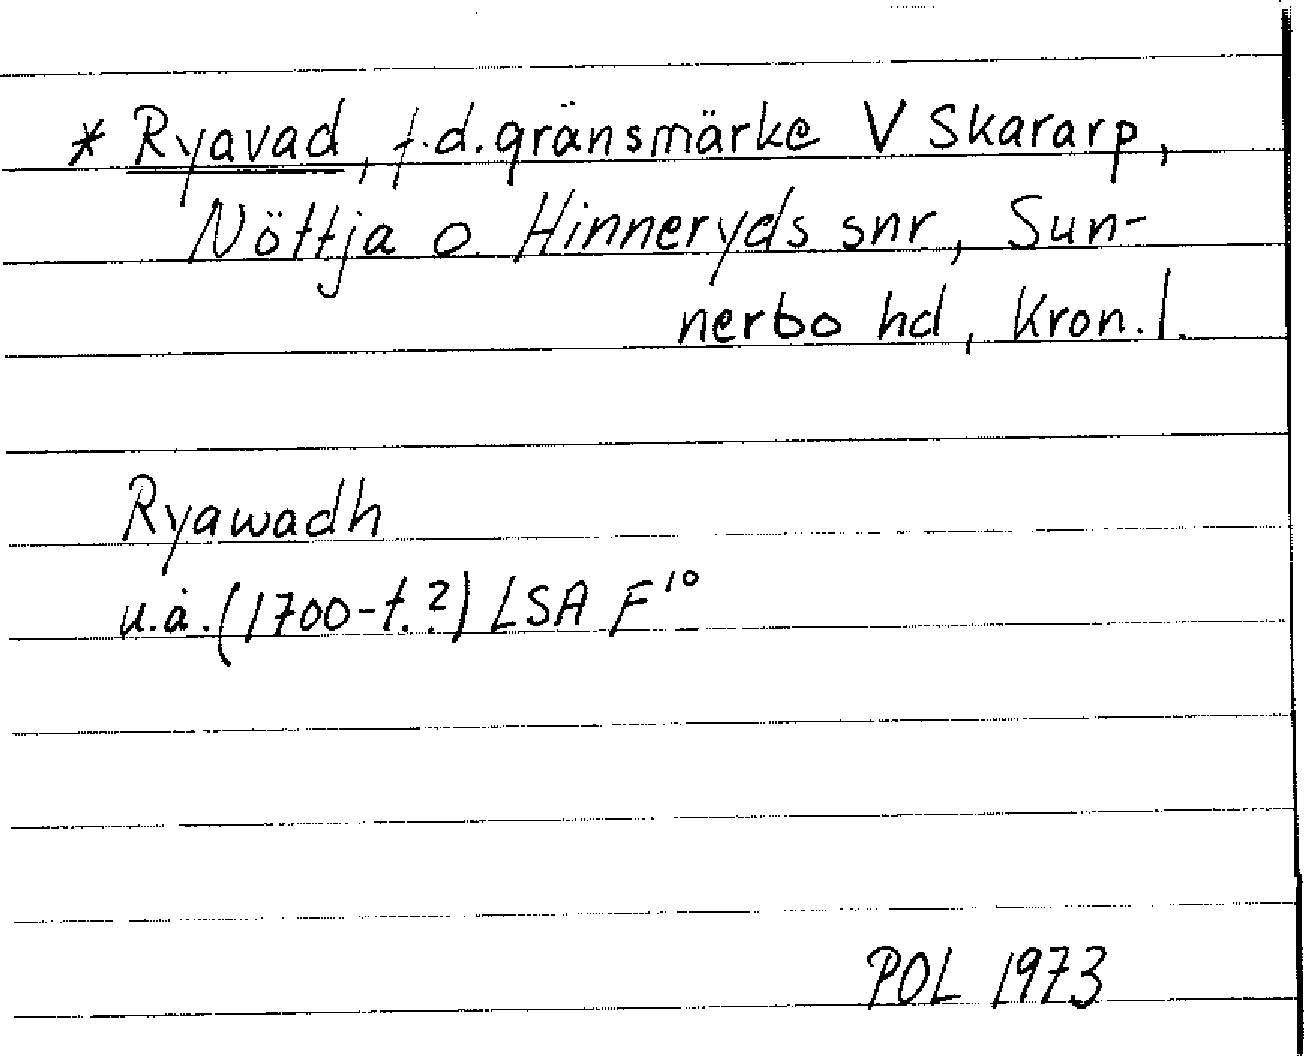 * Ryavad, f.d. gränsmärke V Skararp,
Nöttja o. Hinneryds snr, Sun-
nerbo hd, Kron. l.
Ryawadh
u.å. (1700-t.?) LSA F¹⁰
POL 1973